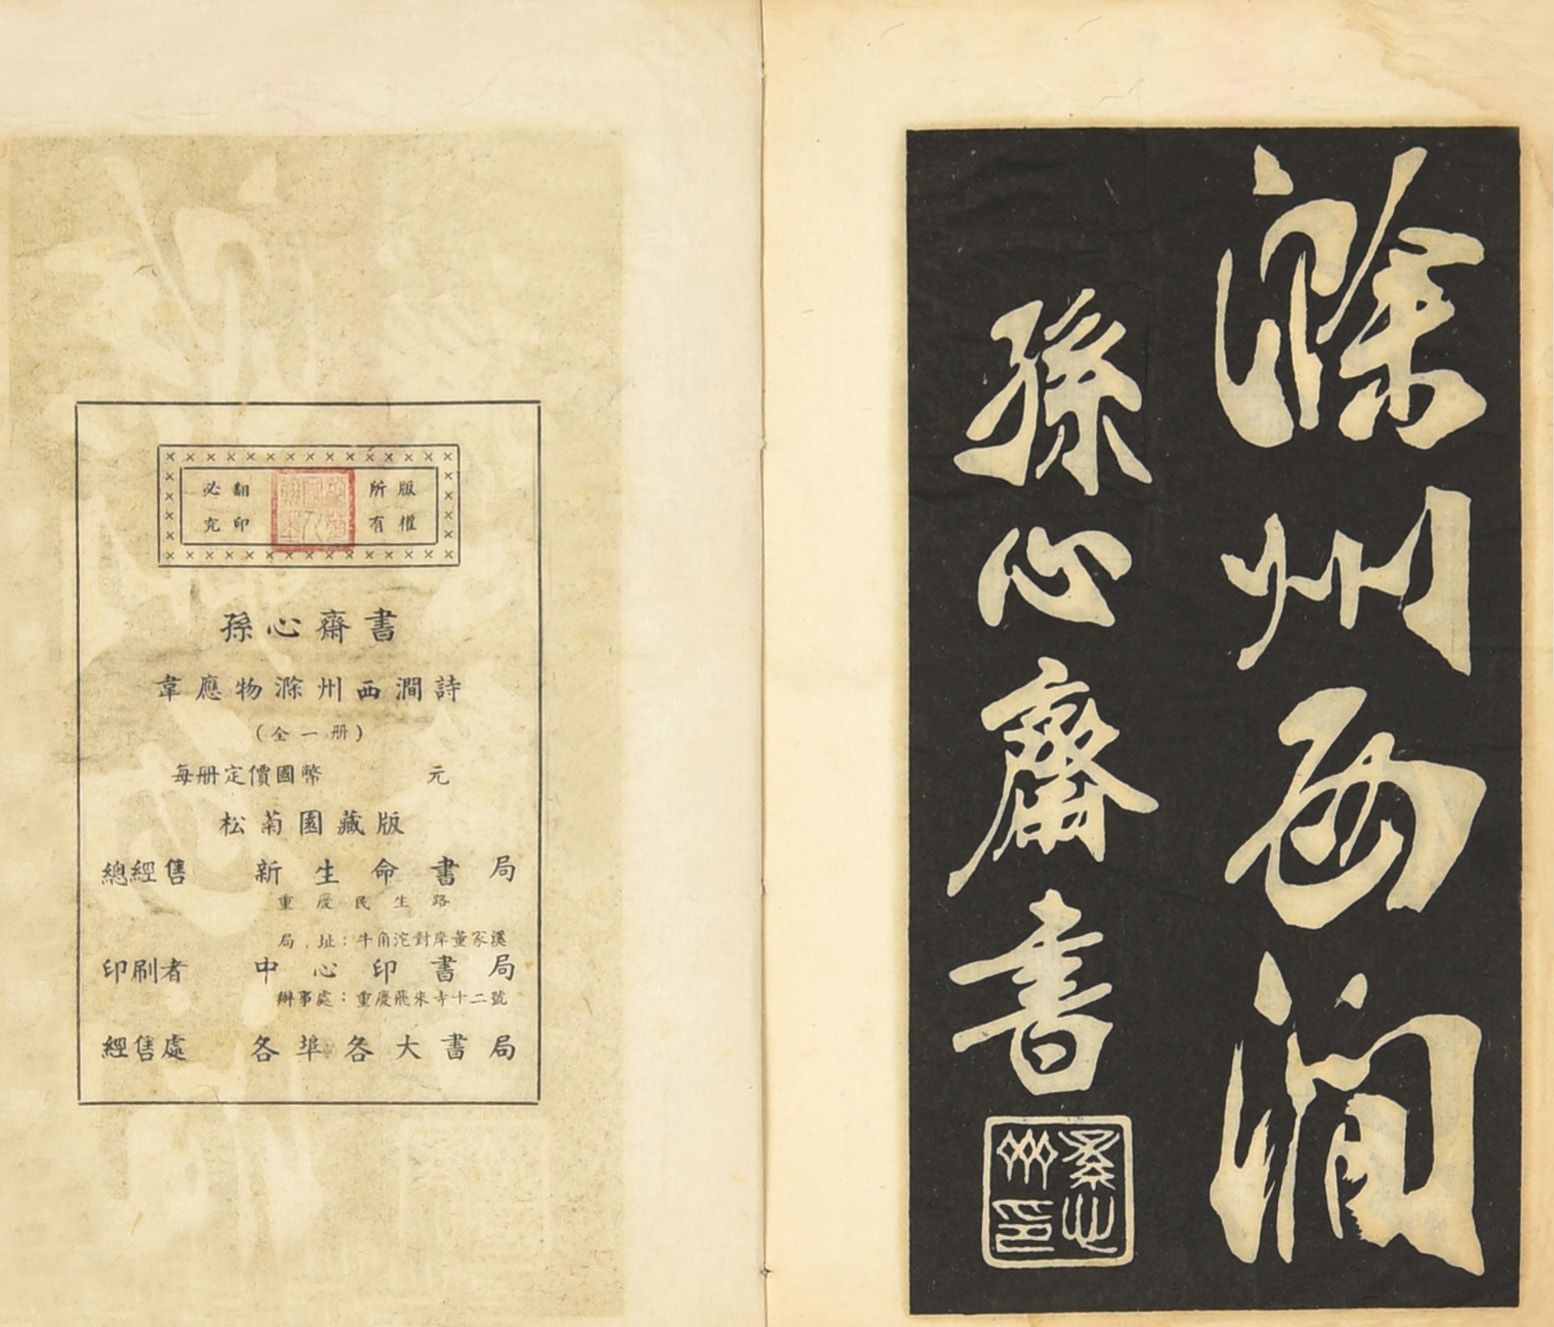 滁州西澗
孫心齋書
版權所有
翻印必究
孫心齋書
韋應物滁州西澗詩
(全一册)
每册定價國幣 元
松菊園藏版
總經售 新生命書局
重慶民生路
局址：牛角沱對岸董家溪
印刷者 中心印書局
辦事處：重慶飛來寺十二號
經售處 各埠各大書局